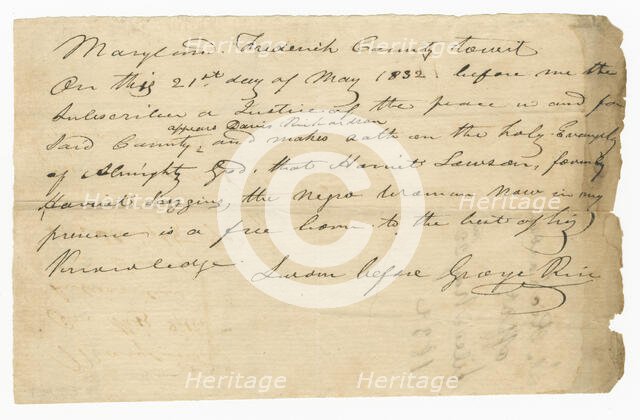 Maryland Frederick County towit
On this 21st day of May 1832 before me the
Subscriber a Justice of the peace in and for
appears Davis Richardson
Said County, and makes oath on the holy Evangely
of Almighty God, that Harriet Lawson, formerly
Harriet Higgins, the Negro woman now in my
presence is a free born to the best of his
Knowledge. Sworn before George Rice
Heritage Heritage
Heritage Heritage
Heritage
1832